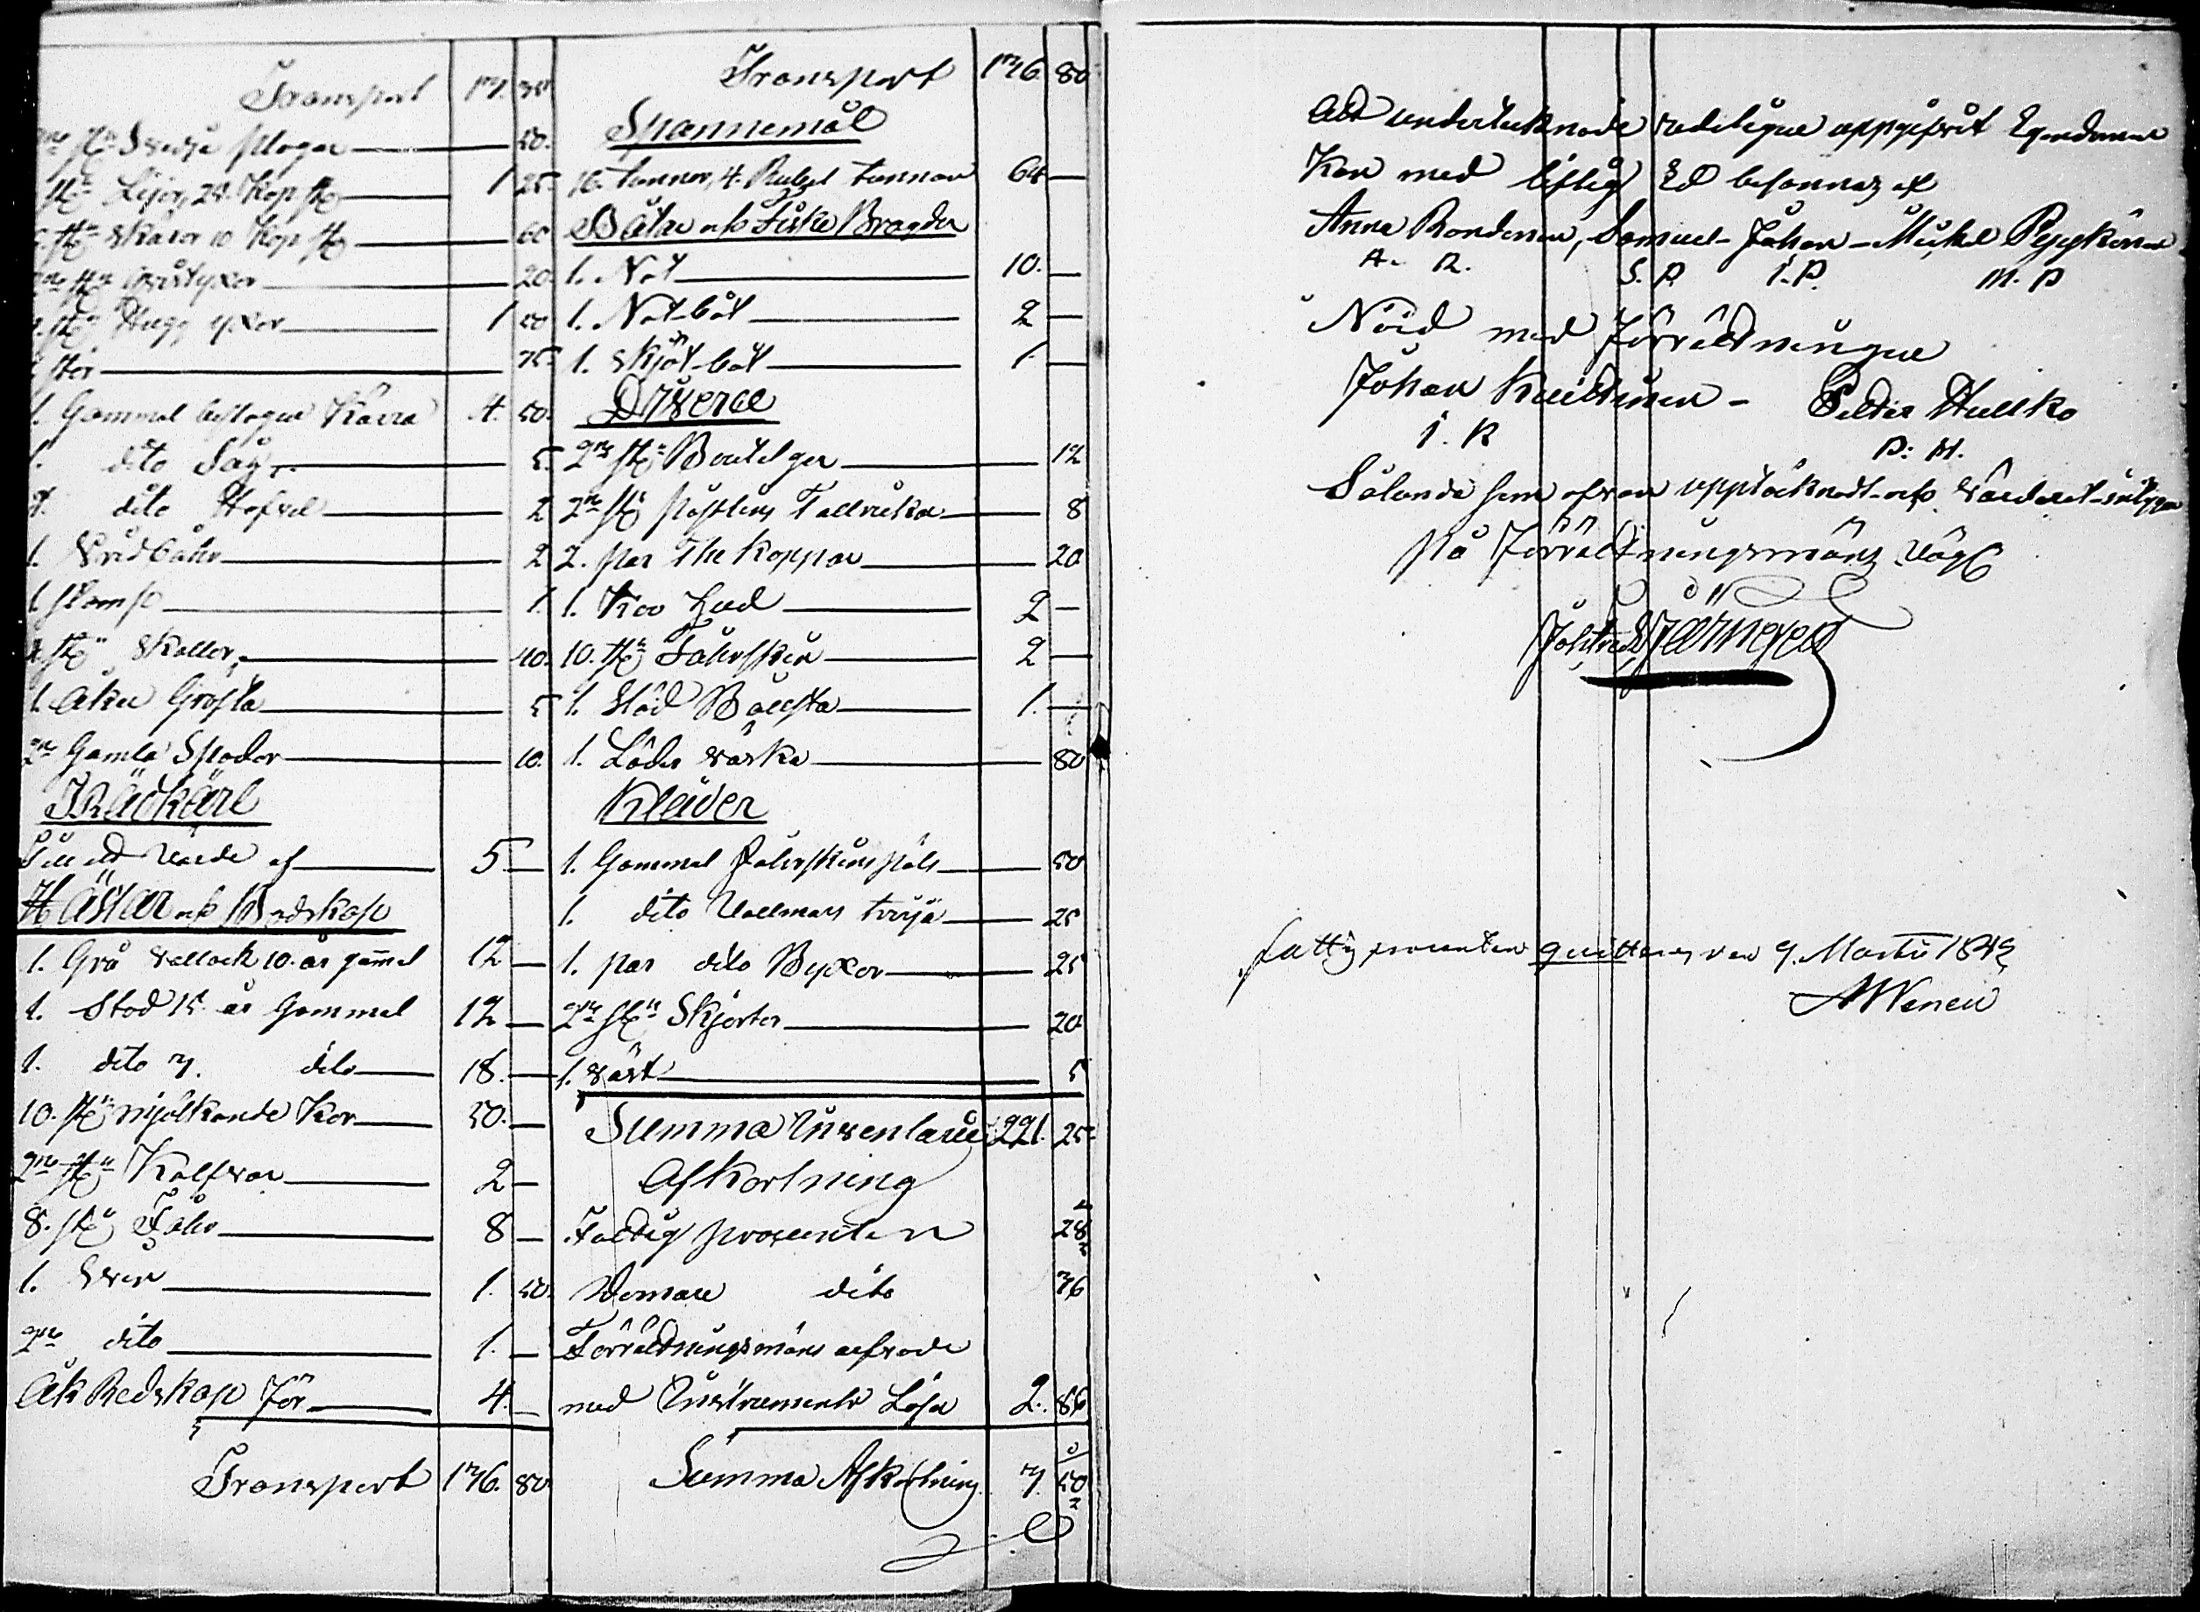 Transport 17. 30
2ne st: Svidje plogar 50.
st: Lijor, 24. Kop st 1 25
st: skäror 10 Kop st 60
2ne st: yxor 20
st: Hugg yxor 1 50
stör 75
1. Gammal beslagen Kärra 4. 50.
1. dito Såg 5.
1. dito Hofvel 2
1. Vridbår 2
1. stamp 1.
st: Skallor 40.
1. Åker 5
2ne Gamla Spador 10.
Träckäril
Till ett värde af 5 —
Hästar och Bodskap
1. Grå vallack 10. år gam̄al 12 —
1. Stod 15. år Gammal 12 —
1. dito 7. dito 18. —
10. st: mjölkande Kor 50. —
2ne st: Kalfvar 2 —
8. st: Får 8 —
1. Svin 1. 50.
2ne dito 1. —
Åk Redskap för 4. —
Transport 176. 80
Transport 176. 80
Spannemål
16. tunnor, 4. Rubel tunnan 64 —
Båtar och Fiske Bragder
1. Not 10. —
1. Not-båt 2 —
1. Skjöt-båt 1. —
Diverse
2ne st: Boutelger 12
2ne st: Tallrickar 8
2. par The Koppar 20
1. Koo Hud 2 —
10. st: Fårskin 2 —
1. Städ 1. —
1. Läder väska 80
Kläder
1. Gammal Fårskins päls 50
1. dito Vallmars tröja 25
1. par dito Byxor 25
2ne st: Skjortor 20
1. väst 5
Summa Inventarii 221. 25
Afkortning
Fattig procenten 28
Domare dito 76
Förrättningsmäns arfvode
med Instruments Lösn 2. 86
Summa Afkortning 7. 50
Att undertecknade redeligen uppgifvit Egendomen
Kan med liflig Ed besannas af
Anna Rondanen, Samuel- Johan- Mickel Pyykönen
A. R. S. P. I. P. M. P
Nöjd med Förrättningen
Johan - Petter Hulko
I. K P: H.
Sålunda som ofvan upptäcknadt och värderat intygar
på Förrättningsmäns vägnar
Fattig procenten quitteras den 9. Martii